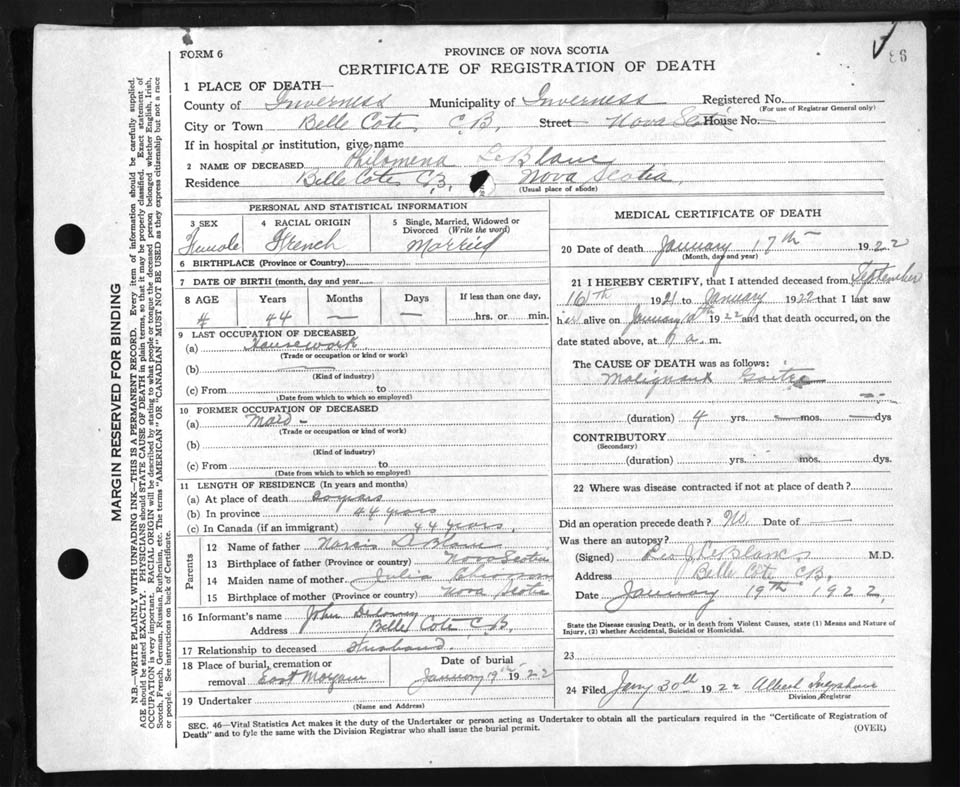 FORM 6
PROVINCE OF NOVA SCOTIA
CERTIFICATE OF REGISTRATION OF DEATH
86
1 PLACE OF DEATH—
County of Inverness Municipality of Inverness Registered No.
(For use of Registrar General only)
City or Town Belle Cote C.B. Street Nova Scotia House No.
If in hospital or institution, give name
2 NAME OF DECEASED Philomena LeBlanc
Residence Belle Cote C.B. Nova Scotia
(Usual place of abode)
PERSONAL AND STATISTICAL INFORMATION
3 SEX 4 RACIAL ORIGIN 5 Single, Married, Widowed or Divorced (Write the word)
Female French Married
6 BIRTHPLACE (Province or Country)
7 DATE OF BIRTH (month, day and year)
8 AGE Years Months Days If less than one day,
44 — — hrs. or min.
9 LAST OCCUPATION OF DECEASED
(a) Housework
(Trade or occupation or kind or work)
(b)
(Kind of industry)
(c) From to
(Date from which to which so employed)
10 FORMER OCCUPATION OF DECEASED
(a) Maid -
(Trade or occupation or kind or work)
(b)
(Kind of industry)
(c) From to
(Date from which to which so employed)
11 LENGTH OF RESIDENCE (In years and months)
(a) At place of death 20 years
(b) In province 44 years
(c) In Canada (if an immigrant) 44 years.
Parents
12 Name of father LeBlanc
13 Birthplace of father (Province or country) Nova Scotia
14 Maiden name of mother Julia
15 Birthplace of mother (Province or country) Nova Scotia
16 Informant's name John
Address Belle Cote C.B.
17 Relationship to deceased Husband
18 Place of burial, cremation or removal East Margaree
Date of burial
January 19th 1922
19 Undertaker
(Name and Address)
MEDICAL CERTIFICATE OF DEATH
20 Date of death January 17th 1922
(Month, day and year)
21 I HEREBY CERTIFY, that I attended deceased from September
16th 1921 to January 1922 that I last saw
her alive on January 1922 and that death occurred, on
date stated above, at a. m.
The CAUSE OF DEATH was as follows:
Malignant Goitre
(duration) 4 yrs. mos. dys
CONTRIBUTORY
(Secondary)
(duration) yrs. mos. dys.
22 Where was disease contracted if not at place of death?
Did an operation precede death? No. Date of —
Was there an autopsy?
(Signed) Leo J LeBlanc M.D.
Address Belle Cote C.B.
Date January 19th 1922.
State the Disease causing Death, or in death from Violent Causes, state (1) Means and Nature of
Injury, (2) whether Accidental, Suicidal or Homicidal.
23
24 Filed Jany 30th 1922 Albert
Division Registrar
SEC. 46—Vital Statistics Act makes it the duty of the Undertaker or person acting as Undertaker to obtain all the particulars required in the "Certificate of Registration of
Death" and to fyle the same with the Division Registrar who shall issue the burial permit.
(OVER)
MARGIN RESERVED FOR BINDING
N.B.—WRITE PLAINLY WITH UNFADING INK—THIS IS A PERMANENT RECORD. Every item of information should be carefully supplied.
AGE should be stated EXACTLY. PHYSICIANS should STATE CAUSE OF DEATH in plain terms, so that it may be properly classified. Exact statement of
OCCUPATION is very important. RACIAL ORIGIN will be described by stating to what people or tongue the deceased person belonged whether English, Irish,
Scotch, French, German, Russian, Ruthenian, etc. The terms "AMERICAN" or "CANADIAN" MUST NOT BE USED as they express citizenship but not a race
or people. See instructions on back of Certificate.